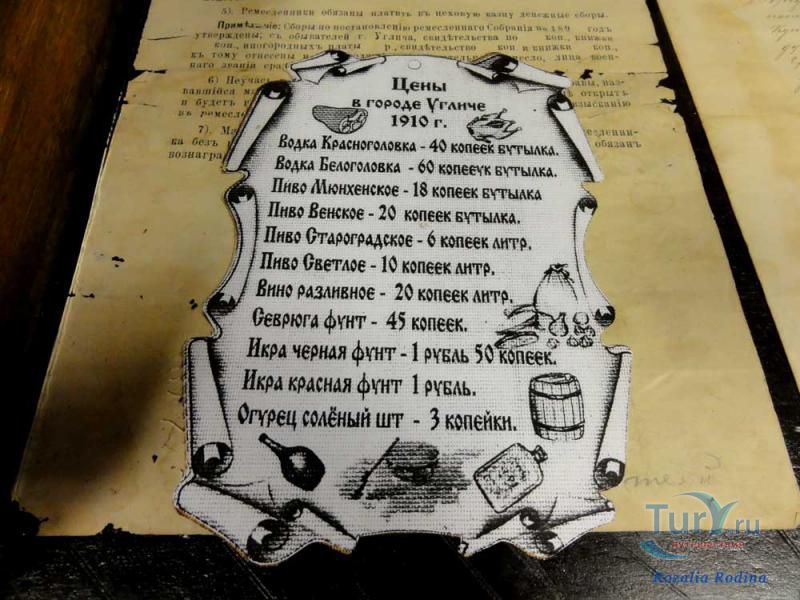 5). Ремесленники обязаны платить въ цеховую казну денежные сборы.
Примѣчаніе: Сборы по постановленію ремесленнаго Собранія въ 189 годъ
утверждены; съ обывателей г. Углича, свидѣтельства по коп., книжки
коп., иногородныхъ платы р., свидѣтельство коп. и книжки коп.,
къ тому отнесены
6) Неучас
7). Ма
Цены
в городе Угличе
1910 г.
Водка Красноголовка - 40 копеек бутылка.
Водка Белоголовка - 60 копееук бутылка.
Пиво Мюнхенское - 18 копеек бутылка
Пиво Венское - 20 копеек бутылка.
Пиво Староградское - 6 копеек литр.
Пиво Светлое - 10 копеек литр.
Вино разливное - 20 копеек литр.
Севрюга фунт - 45 копеек.
Икра черная фунт - 1 рубль 50 копеек.
Икра красная фунт 1 рубль.
Огурец солёный шт - 3 копейки.
Tury.ru
путешествия
Rozalia Rodina